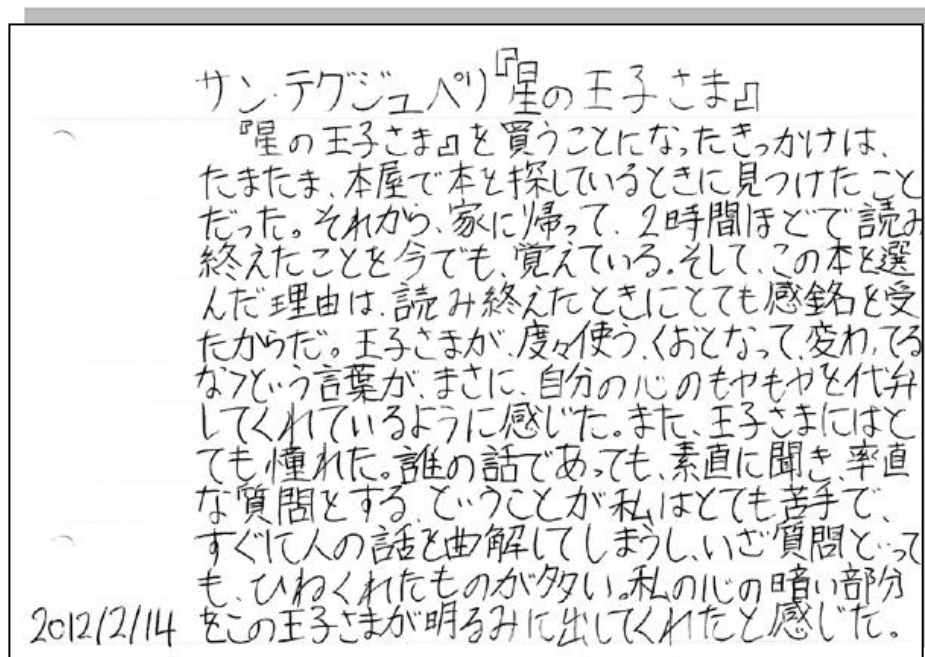 サン・テグジュペリ『星の王子さま』
『星の王子さま』を買うことになったきっかけは、
たまたま、本屋で本を探しているときに見つけたこと
だった。それから、家に帰って、2時間ほどで読み
終えたことを今でも、覚えている。そして、この本を選
んだ理由は、読み終えたときにとても感銘を受
たからだ。王子さまが、度々使う、〈おとなって、変わってる
な〉という言葉が、まさに、自分の心のもやもやを代弁
してくれているように感じた。また、王子さまにはと
ても憧れた。誰の話であっても、素直に聞き、率直
な質問をする、ということが私はとても苦手で、
すぐに人の話を曲解してしまうし、いざ質問といって
も、ひねくれたものが多い。私の心の暗い部分
2012/2/14 をこの王子さまが明るみに出してくれたと感じた。